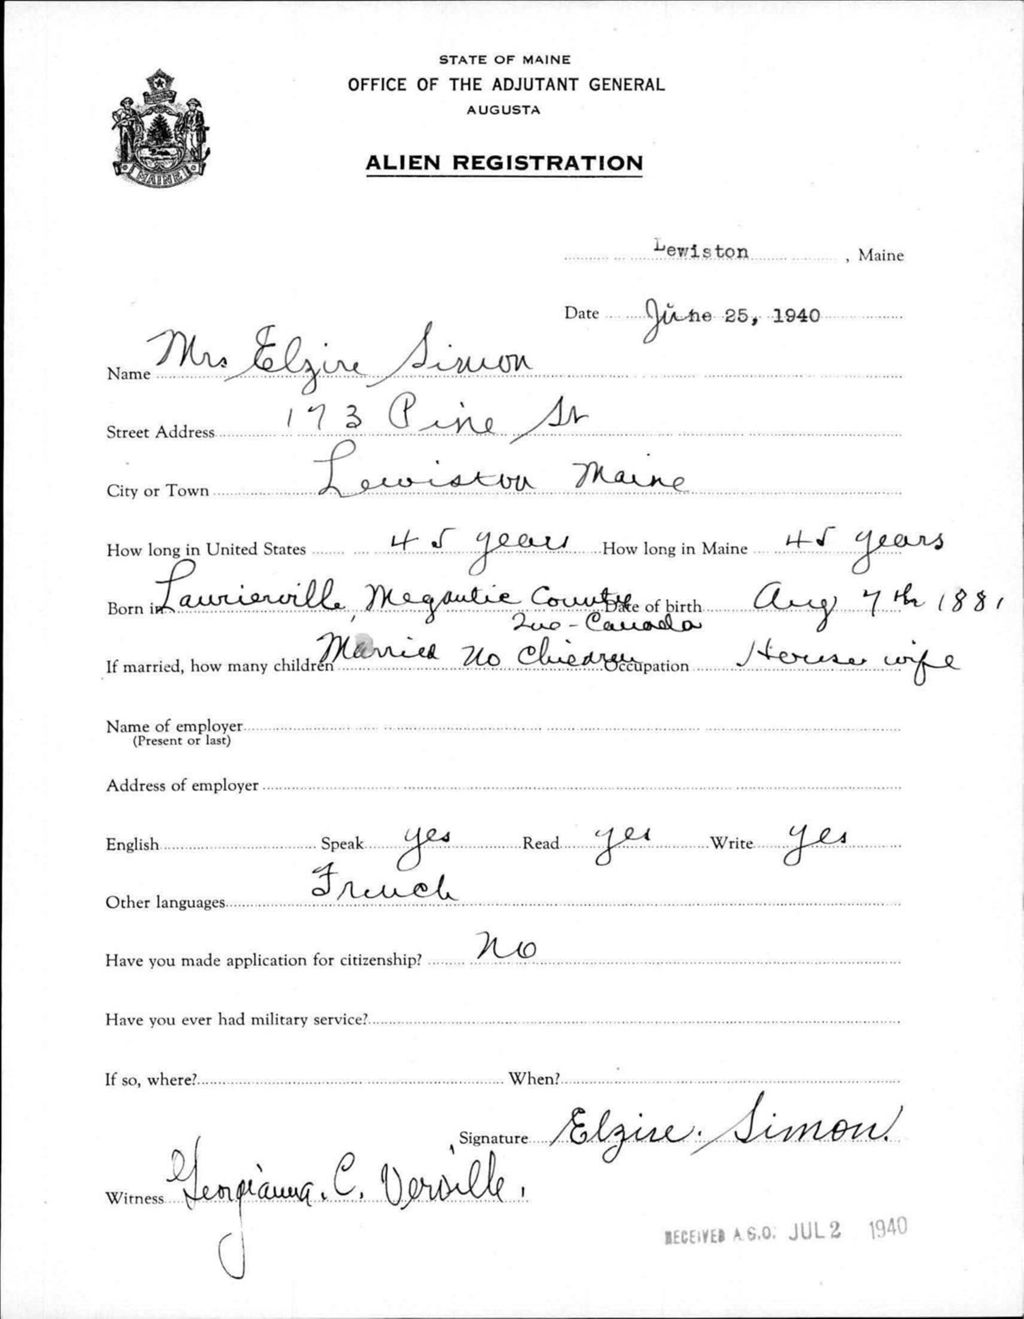 STATE OF MAINE
OFFICE OF THE ADJUTANT GENERAL
AUGUSTA
ALIEN REGISTRATION
MAINE
Lewiston, Maine
Date June 25, 1940
Name Mrs Elzire Simon
Street Address 173 Pine St
City or Town Lewiston Maine
How long in United States 45 years How long in Maine 45 years
Born in Laurierville, Megantic County Date of birth Aug 7th 1881
Que - Canada
If married, how many children Married No Children Occupation House wife
Name of employer
(Present or last)
Address of employer
English Speak yes Read yes Write yes
Other languages French
Have you made application for citizenship? No
Have you ever had military service?
If so, where? When?
Signature Elzire Simon.
Witness Georgianna C. Verville.
RECEIVED A.G.O. JUL 2 1940